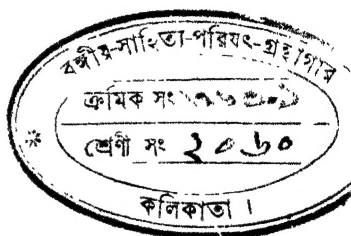 বঙ্গীয়-সাহিত্য-পরিষৎ-গ্রন্থাগার
ক্রমিক সং
শ্রেণী সং ২০৬০
কলিকাতা ।